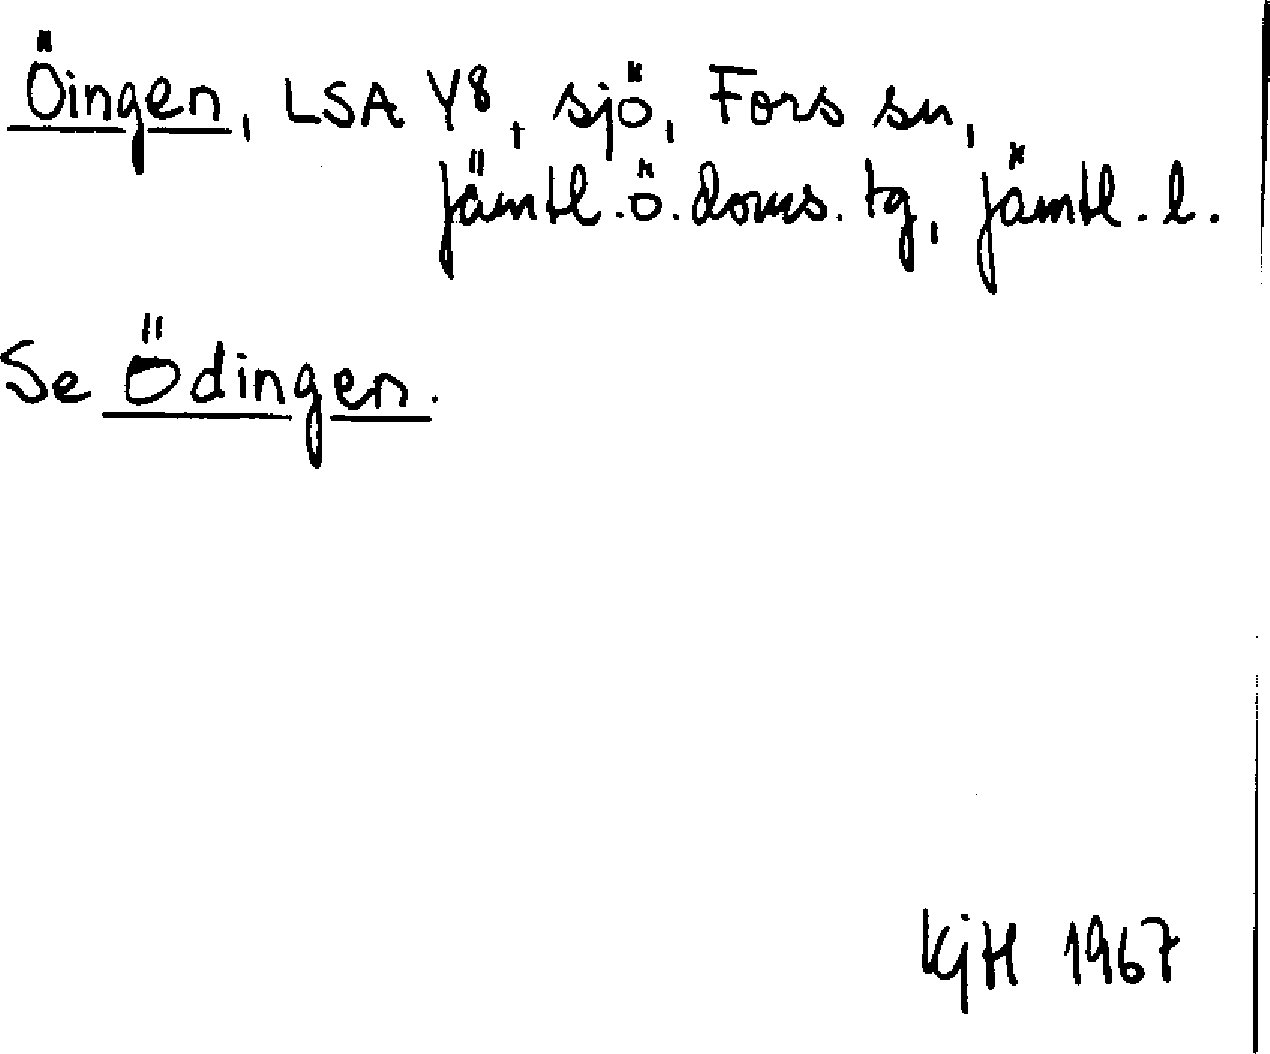 Öingen, LSA Y8, sjö, Fors sn,
Jämtl.ö.doms.tg, Jämtl.l.
Se Ödingen.
KjH 1967